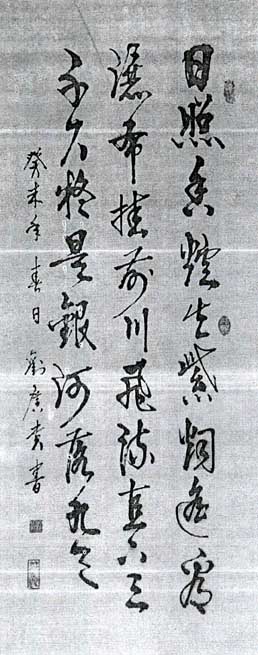 日照香爐生紫烟遥看
瀑布挂前川飛流直下三
千尺疑是銀河落九天
癸未年春日 劉廣貴書